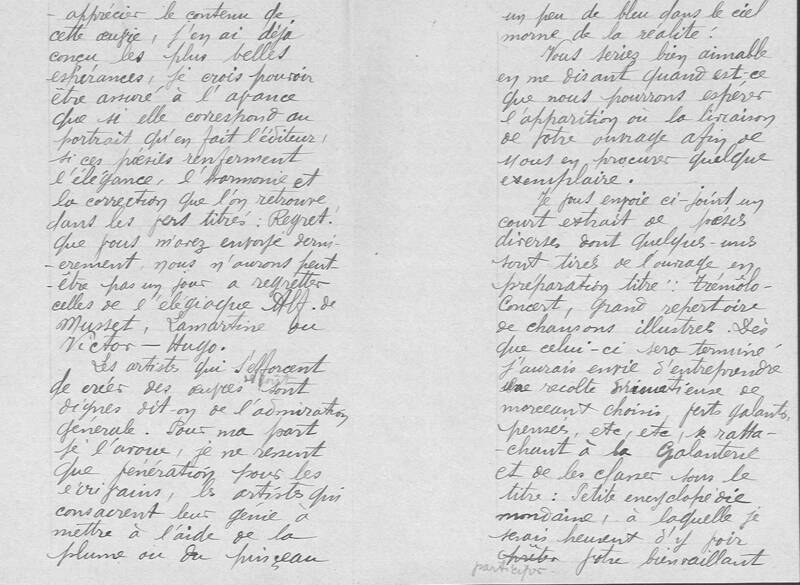 - apprécier le contenu de
cette œuvre, j'en ai déjà
conçu les plus belles
espérances, je crois pouvoir
être assuré à l'avance
que si elle correspond au
portrait qu'en fait l'éditeur,
si ces poésies renferment
l'élégance, l'harmonie et
la correction que l'on retrouve
dans les vers titrés : Regret !
que vous m'avez envoyé derni-
-èrement, nous n'aurons peut-
-être pas un jour a regretter
celles de l'élégiaque Alf. de
Musset, Lamartine ou
Victor-Hugo.
Les artistes qui s'efforcent
de créer des œuvres sont
dignes dit-on de l'admiration
générale. Pour ma part
je l'avoue, je ne ressent
que vénération pour les
écrivains, les artistes qui
consacrent leur génie à
mettre à l'aide de la
plume ou du pinceau
un peu de bleu dans le ciel
morne de la réalité !
Vous seriez bien aimable
en me disant quand est-ce
que nous pourrons espérer
l'apparition où la livraison
de votre ouvrage afin de
nous en procurer quelque
exemplaire.
Je vous envoie ci-joint un
court extrait de pœsies
diverses dont quelques-unes
sont tirés de l'ouvrage en
préparation titré : Trémolo-
Concert, Grand repertoire
de chansons illustrés. Dès
que celui-ci sera terminé
j'aurais envie d'entreprendre
une recolte de
morceaux choisis, verts galants,
pensés, etc, etc, se ratta-
-chant à la Galanterie
et de les classer sous le
titre : Petite encyclopédie
mondaine, à laquelle je
serais heureux d'y voir
participer votre bienveillant